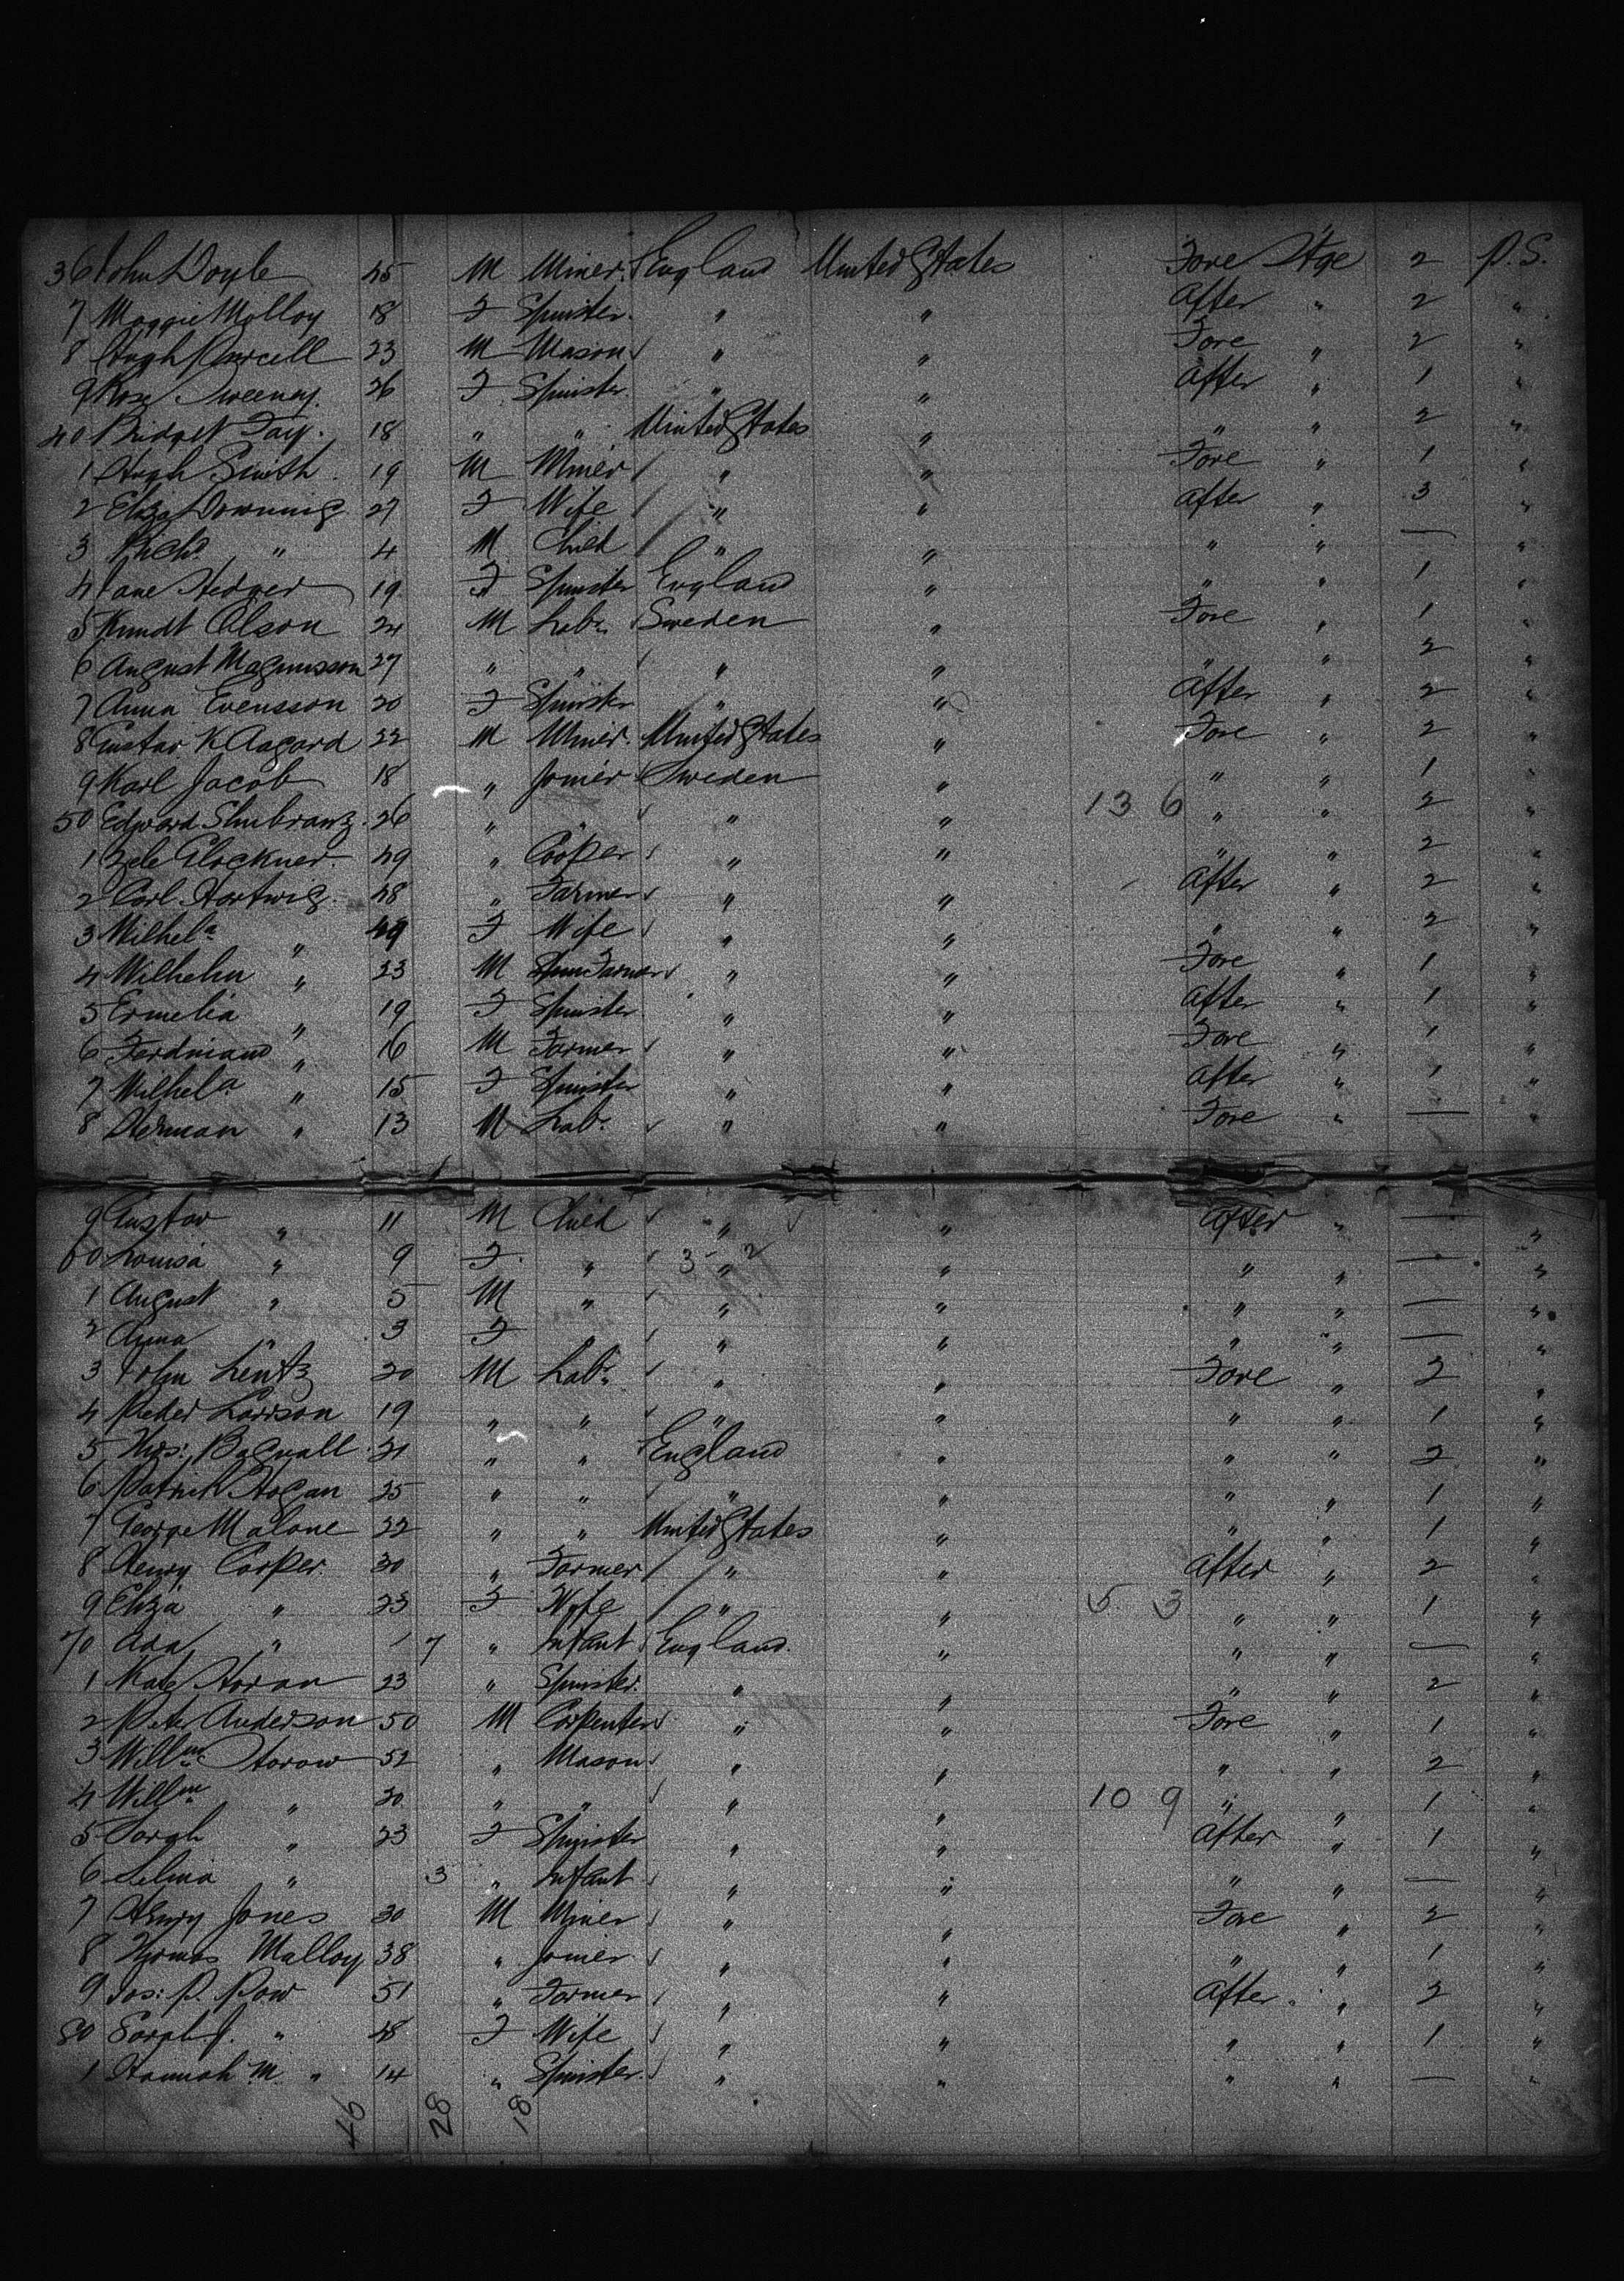 36 John Doyle 45 M Miner England United States Fore Stge 2 P.S.
7 Maggie Molloy 18 F Spinster " " After " 2 "
8 Hugh Purcell 23 M Mason " " Fore " 2 "
9 Rose Sweeney 26 F Spinster " " After " 1 "
40 Bridget Fay 18 " " United States " " " 2 "
1 Hugh Smith 19 M Miner " " Fore " 1 "
2 Eliza Downing 27 F Wife " " After " 3 "
3 Richd " 4 M Child " " " " — "
4 Jane Hedger 19 F Spinster England " " " 1 "
5 Kundt Olson 24 M Labr Sweden " Fore " 1 "
6 August Magnusson 27 " " " " " " 2 "
7 Anna Evensson 20 F Spinster " " After " 2 "
8 Gustav K Aagard 22 M Miner United States " Fore " 2 "
9 Karl Jacob 18 " Joiner Sweden " " " 1 "
50 Edward 26 " " " " 13 6 " " 2 "
1 Glockner 49 " Cooper " " " " 2 "
2 Carl Hartwig 48 " Farmer " " After " 2 "
3 Wilhela " 49 F Wife " " " " 2 "
4 Wilhelm " 23 M Farmer " " Fore " 1 "
5 Ermelia " 19 F Spinster " " After " 1 "
6 Ferdinand " 16 M Farmer " " Fore " 1 "
7 Wilhela " 15 F Spinster " " After " 1 "
8 Herman " 13 M Labr " " Fore " — "
9 Gustav " 11 M Child " " After " — "
60 Louisa " 9 F " 3 - 2 " " " " — "
1 August " 5 M " " " " " — "
2 Anna " 3 F " " " " " — "
3 John Lentz 20 M Labr " " Fore " 2 "
4 Peder Larson 19 " " " " " " 1 "
5 Thos: Bagnall 21 " " England " " " 2 "
6 Patrick Hogan 25 " " " " " " 1 "
7 George Malone 22 " " United States " " " 1 "
8 Henry Corker 30 " Farmer " " After " 2 "
9 Eliza " 23 F Wife " " 5 3 " " 1 "
70 Ada " 7 " Infant England " " " — "
1 Kate Horan 23 " Spinster " " " " 2 "
2 Peter Anderson 50 M Carpenter " " Fore " 1 "
3 Willm Horow 52 " Mason " " " " 2 "
4 Willm " 20 " " " " 10 9 " " 1 "
5 Sarah " 23 F Spinster " " After " 1 "
6 Selina " 3 " Infant " " " " — "
7 Henry Jones 30 M Miner " " Fore " 2 "
8 Thomas Malloy 38 " Joiner " " " " 1 "
9 Jos: P. Pow 51 " Farmer " " After " 2 "
80 Sarah J. " 48 F Wife " " " " 1 "
1 Hannah M. " 14 " Spinster " " " " — "
46 28 18